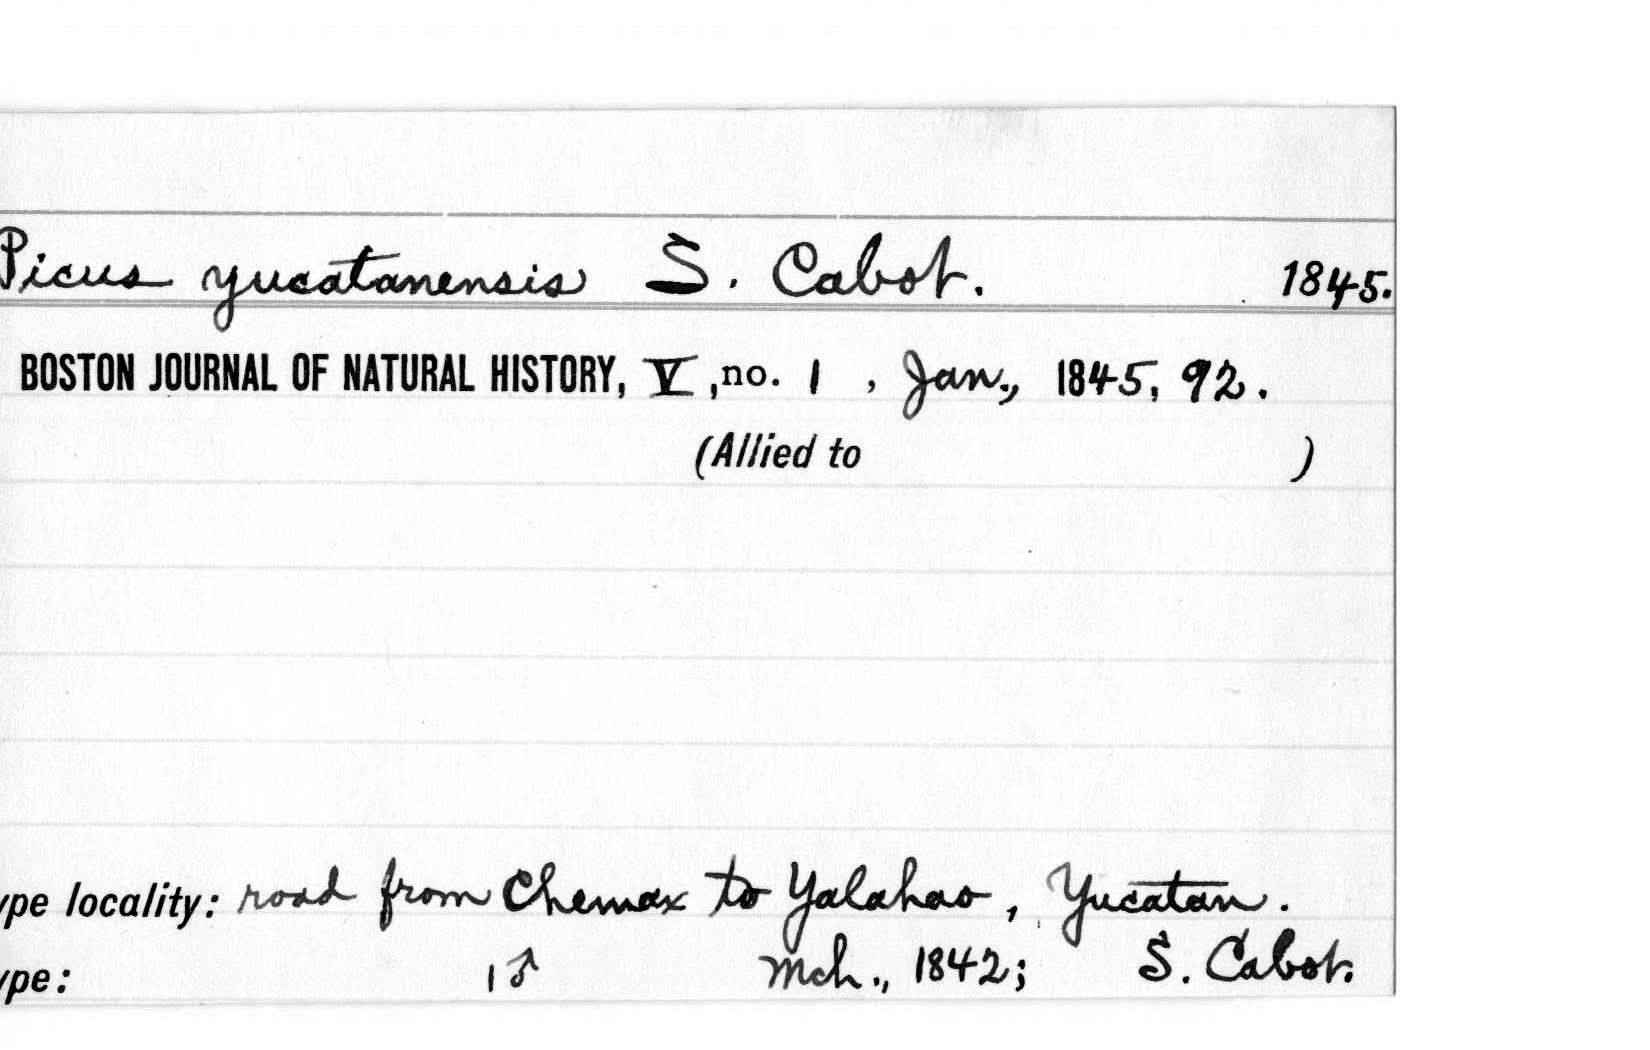 Picus yucatanensis S. Cabot. 1845.
BOSTON JOURNAL OF NATURAL HISTORY, V, no. 1, Jan., 1845, 92.
(Allied to )
ype locality: road from Chemax to Yalahao, Yucatan.
ype: 1♂ Mch., 1842; S. Cabot.